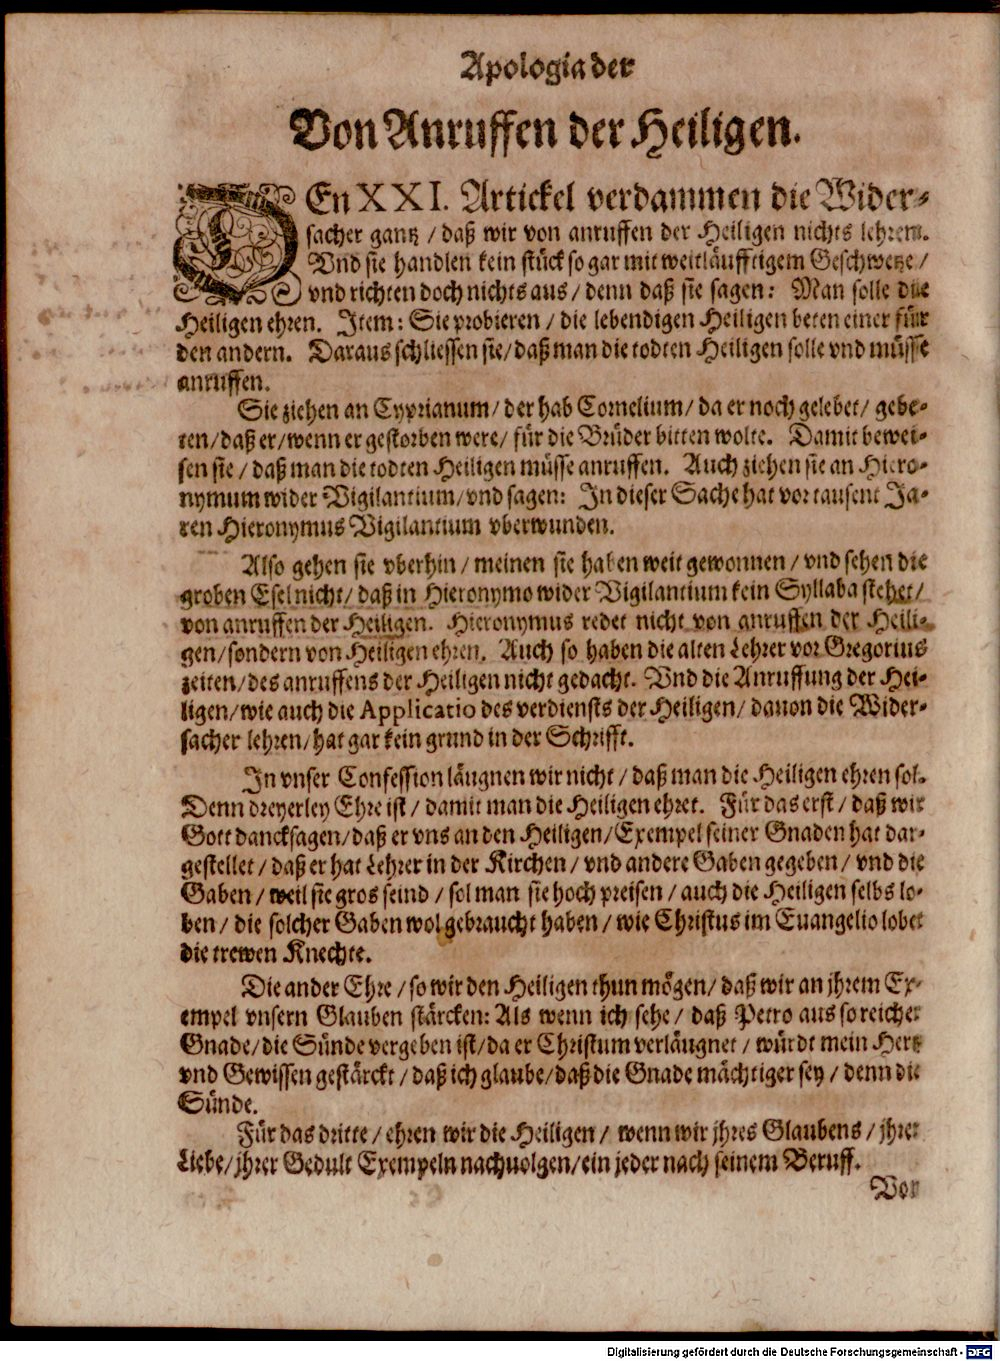 Apologia der
Von Anruffen der Heiligen.
DEn XXI. Artickel verdammen die Wider-
sacher gantz / daß wir von anruffen der Heiligen nichts lehren.
Vnd sie handlen kein stück so gar mit weitläufftigem Geschwetze /
vnd richten doch nichts aus / denn daß sie sagen: Man solle die
Heiligen ehren. Item: Sie probieren / die lebendigen Heiligen beten einer für
den andern. Daraus schliessen sie / daß man die todten Heiligen solle vnd müsse
anruffen.
Sie ziehen an Cyprianum / der hab Cornelium / da er noch gelebet / gebe-
ten / daß er / wenn er gestorben were / für die Brüder bitten wolte. Damit bewei-
sen sie / daß man die todten Heiligen müsse anruffen. Auch ziehen sie an Hiero-
nymum wider Vigilantium / vnd sagen: In dieser Sache hat vor tausent Ja-
ren Hieronymus Vigilantium vberwunden.
Also gehen sie vberhin / meinen sie haben weit gewonnen / vnd sehen die
groben Esel nicht / daß in Hieronymo wider Vigilantium kein Syllaba stehet /
von anruffen der Heiligen. Hieronymus redet nicht von anruffen der Heili-
gen / sondern von Heiligen ehren. Auch so haben die alten Lehrer vor Gregorius
zeiten / des anruffens der Heiligen nicht gedacht. Vnd die Anruffung der Hei-
ligen / wie auch die Applicatio des verdiensts der Heiligen / dauon die Wider-
sacher lehren / hat gar kein grund in der Schrifft.
In vnser Confession läugnen wir nicht / daß man die Heiligen ehren sol.
Denn dreyerley Ehre ist / damit man die Heiligen ehret. Für das erst / daß wir
Gott dancksagen / daß er vns an den Heiligen / Exempel seiner Gnaden hat dar-
gestellet / daß er hat Lehrer in der Kirchen / vnd andere Gaben gegeben / vnd die
Gaben / weil sie gros seind / sol man sie hoch preisen / auch die Heiligen selbs lo-
ben / die solcher Gaben wol gebraucht haben / wie Christus im Euangelio lobet
die trewen Knechte.
Die ander Ehre / so wir den Heiligen thun mögen / daß wir an jhrem Ex-
empel vnsern Glauben stärcken: Als wenn ich sehe / daß Petro aus so reicher
Gnade / die Sünde vergeben ist / da er Christum verläugnet / würdt mein Hertz
vnd Gewissen gestärckt / daß ich glaube / daß die Gnade mächtiger sey / denn die
Sünde.
Für das dritte / ehren wir die Heiligen / wenn wir jhres Glaubens / jhrer
Liebe / jhrer Gedult Exempeln nachuolgen / ein jeder nach seinem Beruff.
Vor
Digitalisierung gefördert durch die Deutsche Forschungsgemeinschaft - DFG